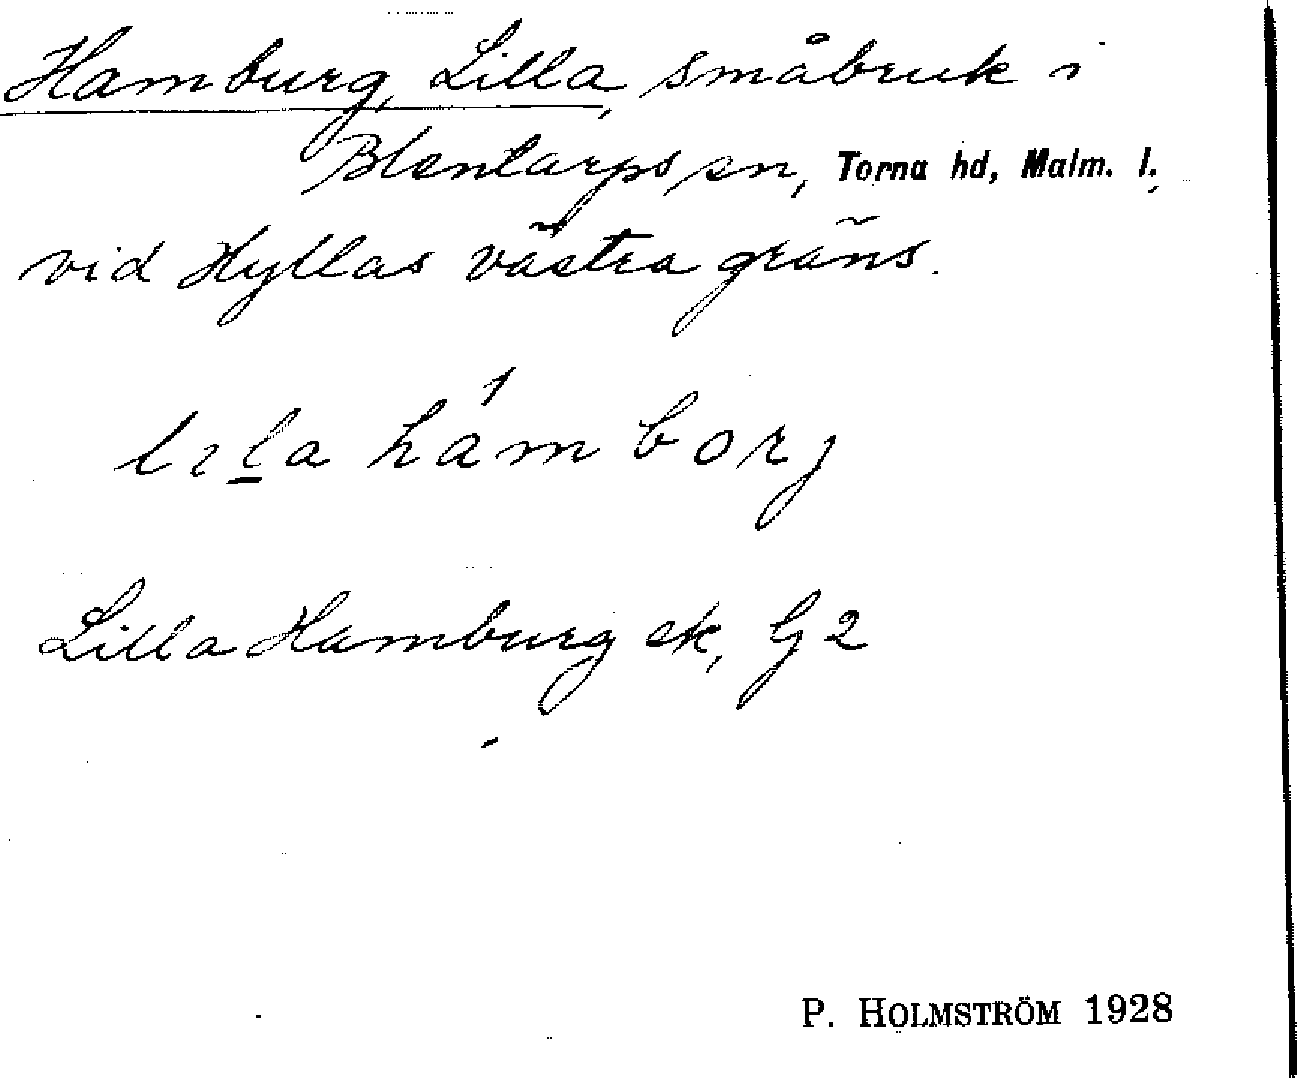 Hamburg, Lilla, småbruk i
Blentarps sn, Torna hd, Malm. l.
vid Hyllas västra gräns.
lila hámborj
Lilla Hamburg ek, G2
P. HOLMSTRÖM 1928